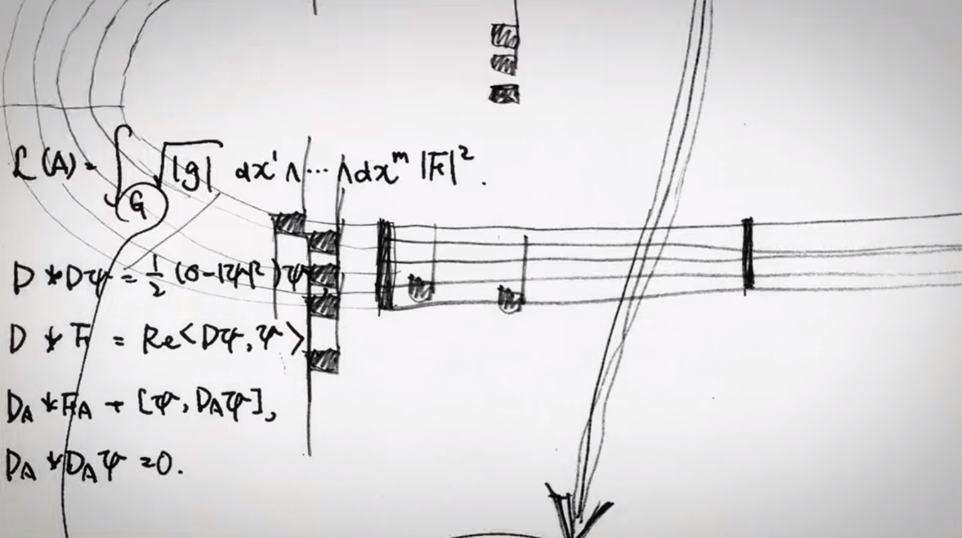 L(A) = ∫_G √|g| dx¹ ∧ ⋯ ∧ dxᵐ |F|².
D * Dψ = 1/2 (σ-|ψ|²)ψ,
D * F = Re<Dψ,ψ>
D_A * F_A + [ψ, D_Aψ],
D_A * D_Aψ = 0.